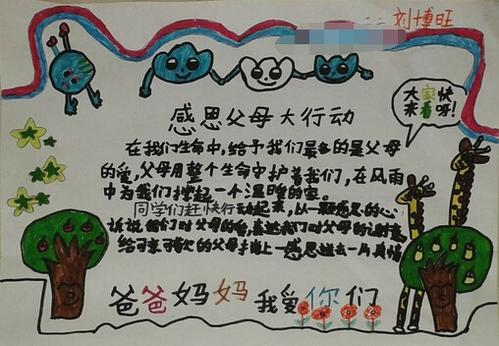 二二 刘博旺
感恩父母大行动
大家快
来看呀!
在我们生命中,给予我们最多的是父母
的爱,父母用整个生命守护着我们,在风雨
中为我们撑起一个温暖的家。
同学们赶快行动起来,以一颗感恩的心,
诉说我们对父母的爱,表达我们对父母的谢意
给可亲可敬的父母手上一感恩送去一片真情
爸爸妈妈 我爱你们